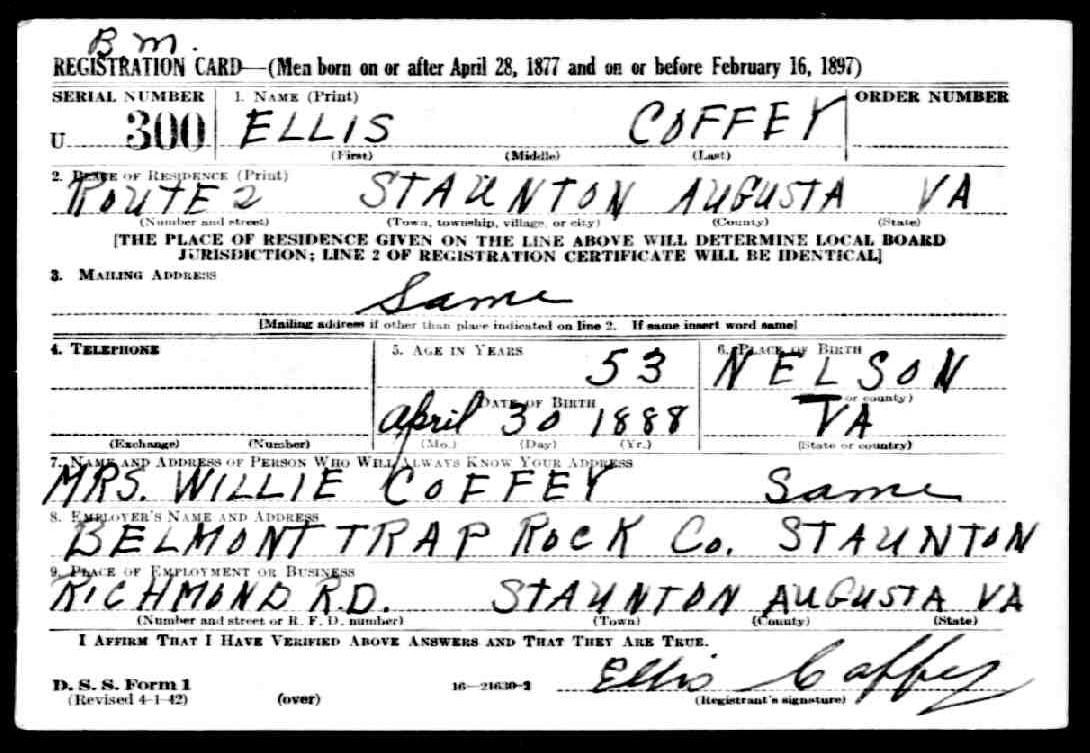 B M.
REGISTRATION CARD—(Men born on or after April 28, 1877 and on or before February 16, 1897)
SERIAL NUMBER 1. NAME (Print) ORDER NUMBER
U 300 ELLIS COFFEY
(First) (Middle) (Last)
2. PLACE OF RESIDENCE (Print)
ROUTE 2 STAUNTON AUGUSTA VA
(Number and street) (Town, township, village, or city) (County) (State)
[THE PLACE OF RESIDENCE GIVEN ON THE LINE ABOVE WILL DETERMINE LOCAL BOARD
JURISDICTION; LINE 2 OF REGISTRATION CERTIFICATE WILL BE IDENTICAL]
3. MAILING ADDRESS
Same
[Mailing address if other than place indicated on line 2. If same insert word same]
4. TELEPHONE 5. AGE IN YEARS 6. PLACE OF BIRTH
53 NELSON
DATE OF BIRTH or county)
April 30 1888 VA
(Exchange) (Number) (Mo.) (Day) (Yr.) (State or country)
7. NAME AND ADDRESS OF PERSON WHO WILL ALWAYS KNOW YOUR ADDRESS
MRS. WILLIE COFFEY Same
8. EMPLOYER'S NAME AND ADDRESS
BELMONT TRAP ROCK Co. STAUNTON
9. PLACE OF EMPLOYMENT OR BUSINESS
RICHMOND R.D. STAUNTON AUGUSTA VA
(Number and street or R. F. D. number) (Town) (County) (State)
I AFFIRM THAT I HAVE VERIFIED ABOVE ANSWERS AND THAT THEY ARE TRUE.
Ellis Coffey
D. S. S. Form 1 16—21630-2
(Revised 4-1-42) (over) (Registrant's signature)